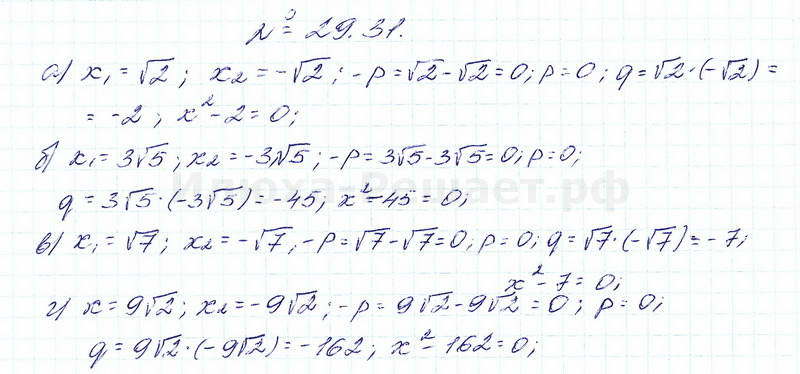 № 29.31.
а) x₁ = √2 ; x₂ = -√2 ; -p = √2 - √2 = 0; p = 0 ; q = √2 · (-√2) =
= -2 ; x² - 2 = 0;
б) x₁ = 3√5 ; x₂ = -3√5 ; -p = 3√5 - 3√5 = 0; p = 0;
q = 3√5 · (-3√5) = -45; x² - 45 = 0;
Илюха-Решает.рф
в) x₁ = √7 ; x₂ = -√7 ; -p = √7 - √7 = 0; p = 0; q = √7 · (-√7) = -7;
x² - 7 = 0;
г) x = 9√2 ; x₂ = -9√2 ; -p = 9√2 - 9√2 = 0 ; p = 0;
q = 9√2 · (-9√2) = -162 ; x² - 162 = 0;